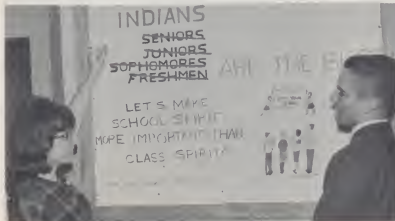 INDIANS
SENIORS
JUNIORS
SOPHOMORES
FRESHMEN
ARE THE
LET'S MAKE
SCHOOL SPIRIT
MORE IMPORTANT THAN
CLASS SPIRIT